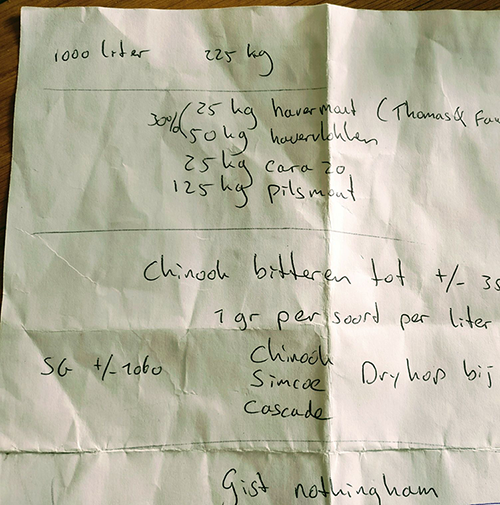 1000 liter 225 kg
30% 25 kg havermout (Thomas &
50 kg havervlokken
25 kg cara 20
125 kg pilsmout
Chinook bitteren tot +/- 35
1 gr per soort per liter
Chinook
SG +/- 1060 Simcoe Dryhop bij
Cascade
Gist nothingham